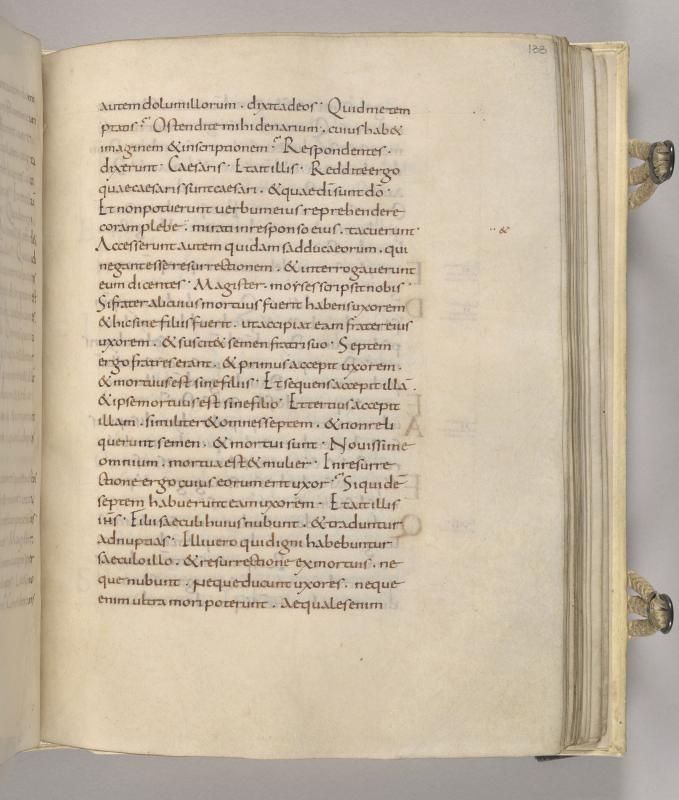 133
autem dolum illorum . dixit ad eos . Quid me tem
ptatis ? Ostendite mihi denarium . cuius hab&
imaginem & inscriptionem ? Respondentes .
dixerunt . Caesaris . Et ait illis . Reddite ergo
quae caesaris sunt caesari . & quae di sunt do .
Et non potuerunt verbum eius reprehendere
coram plebe . mirati in responso eius . tacuerunt .
&
Accesserunt autem quidam sadducaeorum . qui
negant esse resurrectionem . & interrogaverunt
eum dicentes . Magister . moyses scripsit nobis .
Si frater alicuius mortuus fuerit habens uxorem
& hic sine filiis fuerit . ut accipiat eam frater eius
uxorem . & suscit& semen fratri suo . Septem
ergo fratres erant . & primus accepit uxorem .
& mortuus est sine filiis . Et sequens accepit illā .
& ipse mortuus est sine filio . Et tertius accepit
illam . similiter & omnes septem . & non reli
querunt semen . & mortui sunt . Novissime
omnium . mortua est & mulier . In resurre
ctione ergo cuius eorum erit uxor ? Siquidē
septem habuerunt eam uxorem . Et ait illis
ihs . Filii saeculi huius nubunt . & traduntur
ad nuptias . Illi vero qui digni habebuntur
saeculo illo . & resurrectione ex mortuis . ne
que nubunt . neque ducunt uxores . neque
enim ultra mori poterunt . Aequales enim